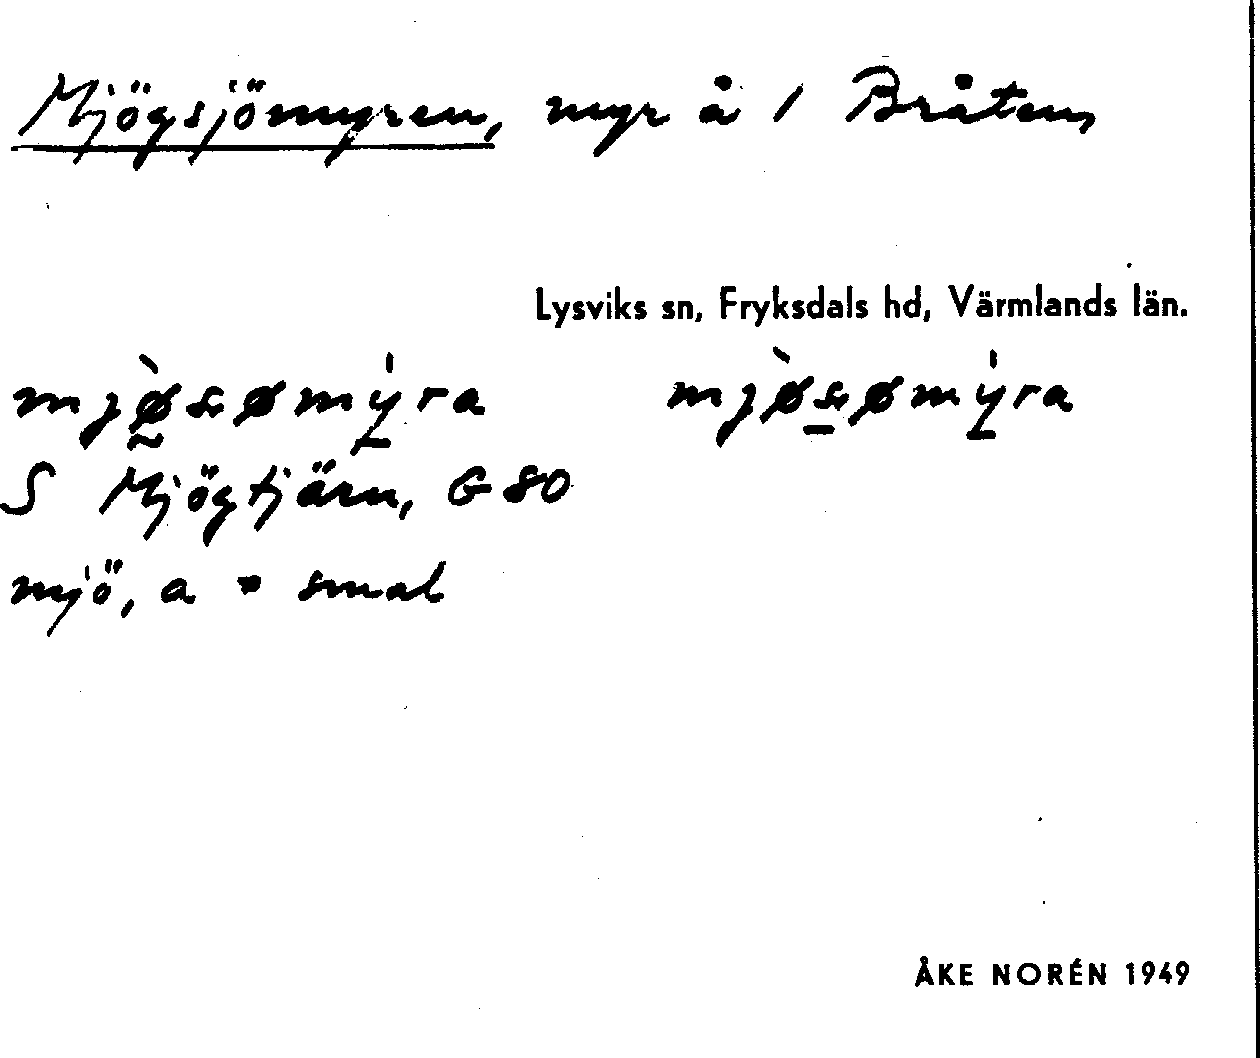 Mjögsjömyren, myr å 1 Bråten,
Lysviks sn, Fryksdals hd, Värmlands län.
mjø̀sømýra mjø̀sømýra
S Mjögtjärn, G 80
mjö, a = smal
ÅKE NORÉN 1949